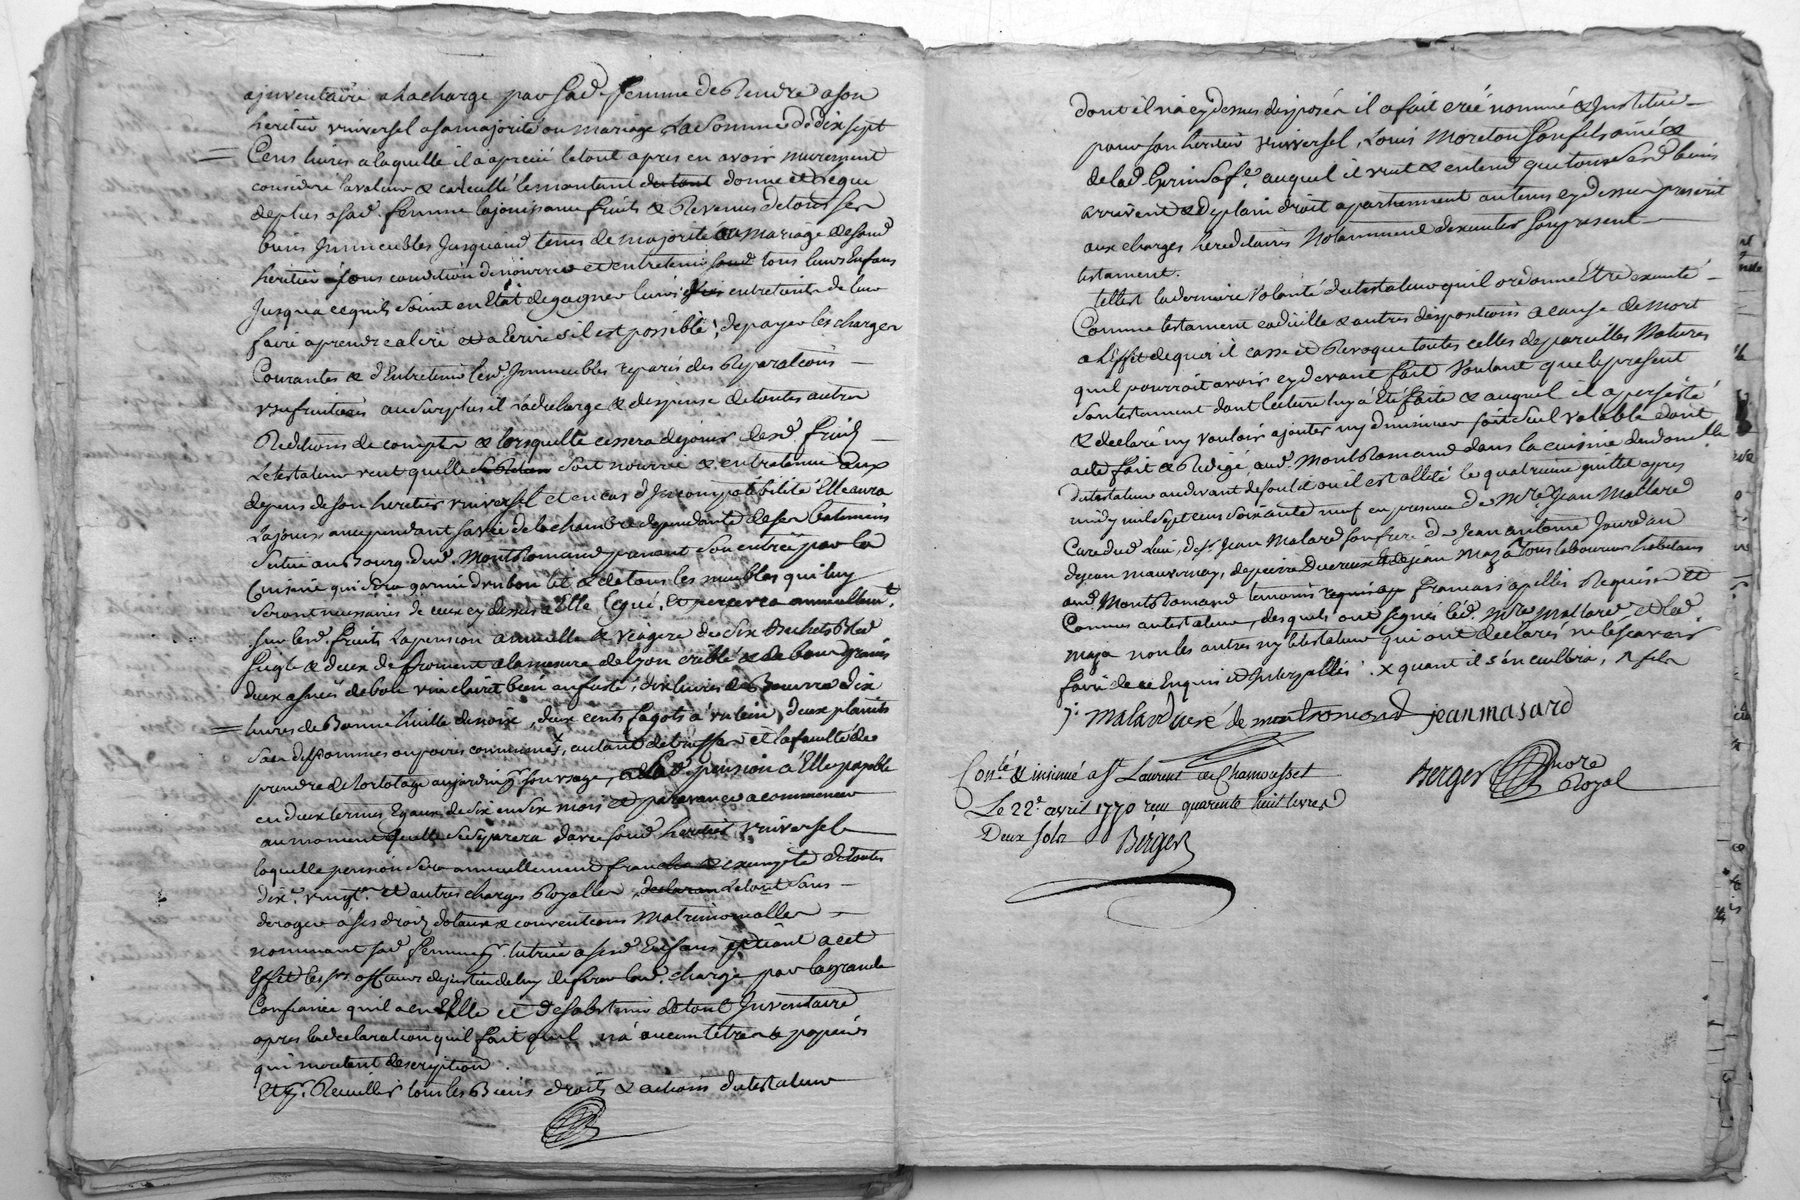 ajnventairé a la charge par sad. femme de Rendre a son
heritier vniversel a sa majorité ou mariage la somme de dix sept
Cens livres a laquelle il a aprecié le tout apres en avoir murement
consideré la valeur & calcullé le montant du tout donne et legue
de plus a sad. femme la jouissance fruits & Revenus de tous ses
biens Jmmeubles Jusquaud. tems de majorité ou mariage de soud.
heritier sous condition de nourrir et entretenir tous leurs Enfans
Jusqua ce quils soient en Etat de gagner leurs entretients de leur
faire aprendre a lire et a Ecrire s'il est possible, de payer les charges
Courantes & d'Entretenir lesd. Jmmeubles reparés des Réparations
vsufruitieres au surplus il la decharge & dispense de toutes autres
Redditions de compte & lorsquelle cessera de jouir desd. fruits
Le testateur veut quelle soit nourrie & entretenue aux
depens de son heritier vniversel et en cas d'Jncompatibilité Elle aura
la jouissance pendant sa vie de la chambre dependante de ses batimens
situé au Bourg dud. MontRomand prenant son entrée par la
Cuisine qui sera garnie d'un bon lit & de tous les meubles qui luy
seront necessaires de ceux cy dessus a Elle legué, Et percevra annuellemt.
sur lesd. fruits la pension annuelle & viagere de six Bichets Bled
seigle & deux de froment a la mesure de Lyon criblé & de bons grains
deux asnées de bon vin clairet bien enfusté, dix livres de Beurre dix
livres de Bonne huille de noix, deux cents fagots a ruban, deux plains
sacs de pommes ou poires communes, autant de truffes et la faculté de
prendre de l'ortolage au jardin pr. son vsage, lad. pension a Elle payable
en deux termes Egaux de six en six mois et par avance a commencer
au moment quelle se separera d'avec soud. heritier vniversel
laquelle pension sera annuellement franche & exempte de toutes
dixe. vingte. et autres charges Royalles declarant le tout sans
deroger a ses droits dotaux & conventions Matrimonialles
nommant sad. femme pr. tutrice a sesd. Enfans priant a cet
Effet les srs. officiers de justice de luy deferer lad. charge par la grande
Confiance quil a en Elle et de s'abstenir de tout Jnventaire
apres la declaration quil fait quil n'a aucun tétres & papiers
qui meritent description.
Et pr. Recuillir tous les Biens droits & actions du testateur
dont il n'a cy dessus disposéa il a fait créé nommé & Jnstitué
pour son heritier vniversel, Louis Moreton son fils ainé &
de lad. Gerin sa fe. auquel il veut & entend que tous sesd. biens
arrivent & de plain droit apartiennent au tems cy dessus prescrit
aux charges hereditaires Notamment d'executer son present
testament.
Telle est la derniere volonté du testateur quil ordonne Etre executé
Comme testament codicille & autres dispositions a cause de mort
a l'effet de quoi il casse et Revoque toutes celles de pareilles Natures
quil pourroit avoir cy devant fait voulant que le present
son testament dont lecture luy a Eté faite & auquel il a persisté
& declaré ny vouloir ajouter ny diminuer soit seul valable dont
acte fait & Redigé aud. MontRomand dans la cuisine du domicille
du testateur au devant de son lit ou il est allité le quatrieme juillet apres
midy mil sept cens soixante neuf en presence de Mre. Jean Mallard
Curé dud. lieu, de sr. Jean Malard son frere de Jean antoine Jourdan
de jean mauvernay, de pierre Ducreux & de jean Maza tous laboureurs habitans
aud. MontRomand temoins requis ap francais apellés Requis et
Connus au testateur, desquels ont signés led. Mre. Mallard et led.
Maza non les autres ny le testateur qui ont declarés ne le scavoir
faire de ce Enquis et Jnterpellés. x quant il s'en cuillira, A fils
J. Malard curé de montromand jean masard
Conlé. & insinué a St. Laurent de Chamousset
Le 22e. avril 1770 recu quarente huit livres
Deux sols Berger
Berger nore
Royal